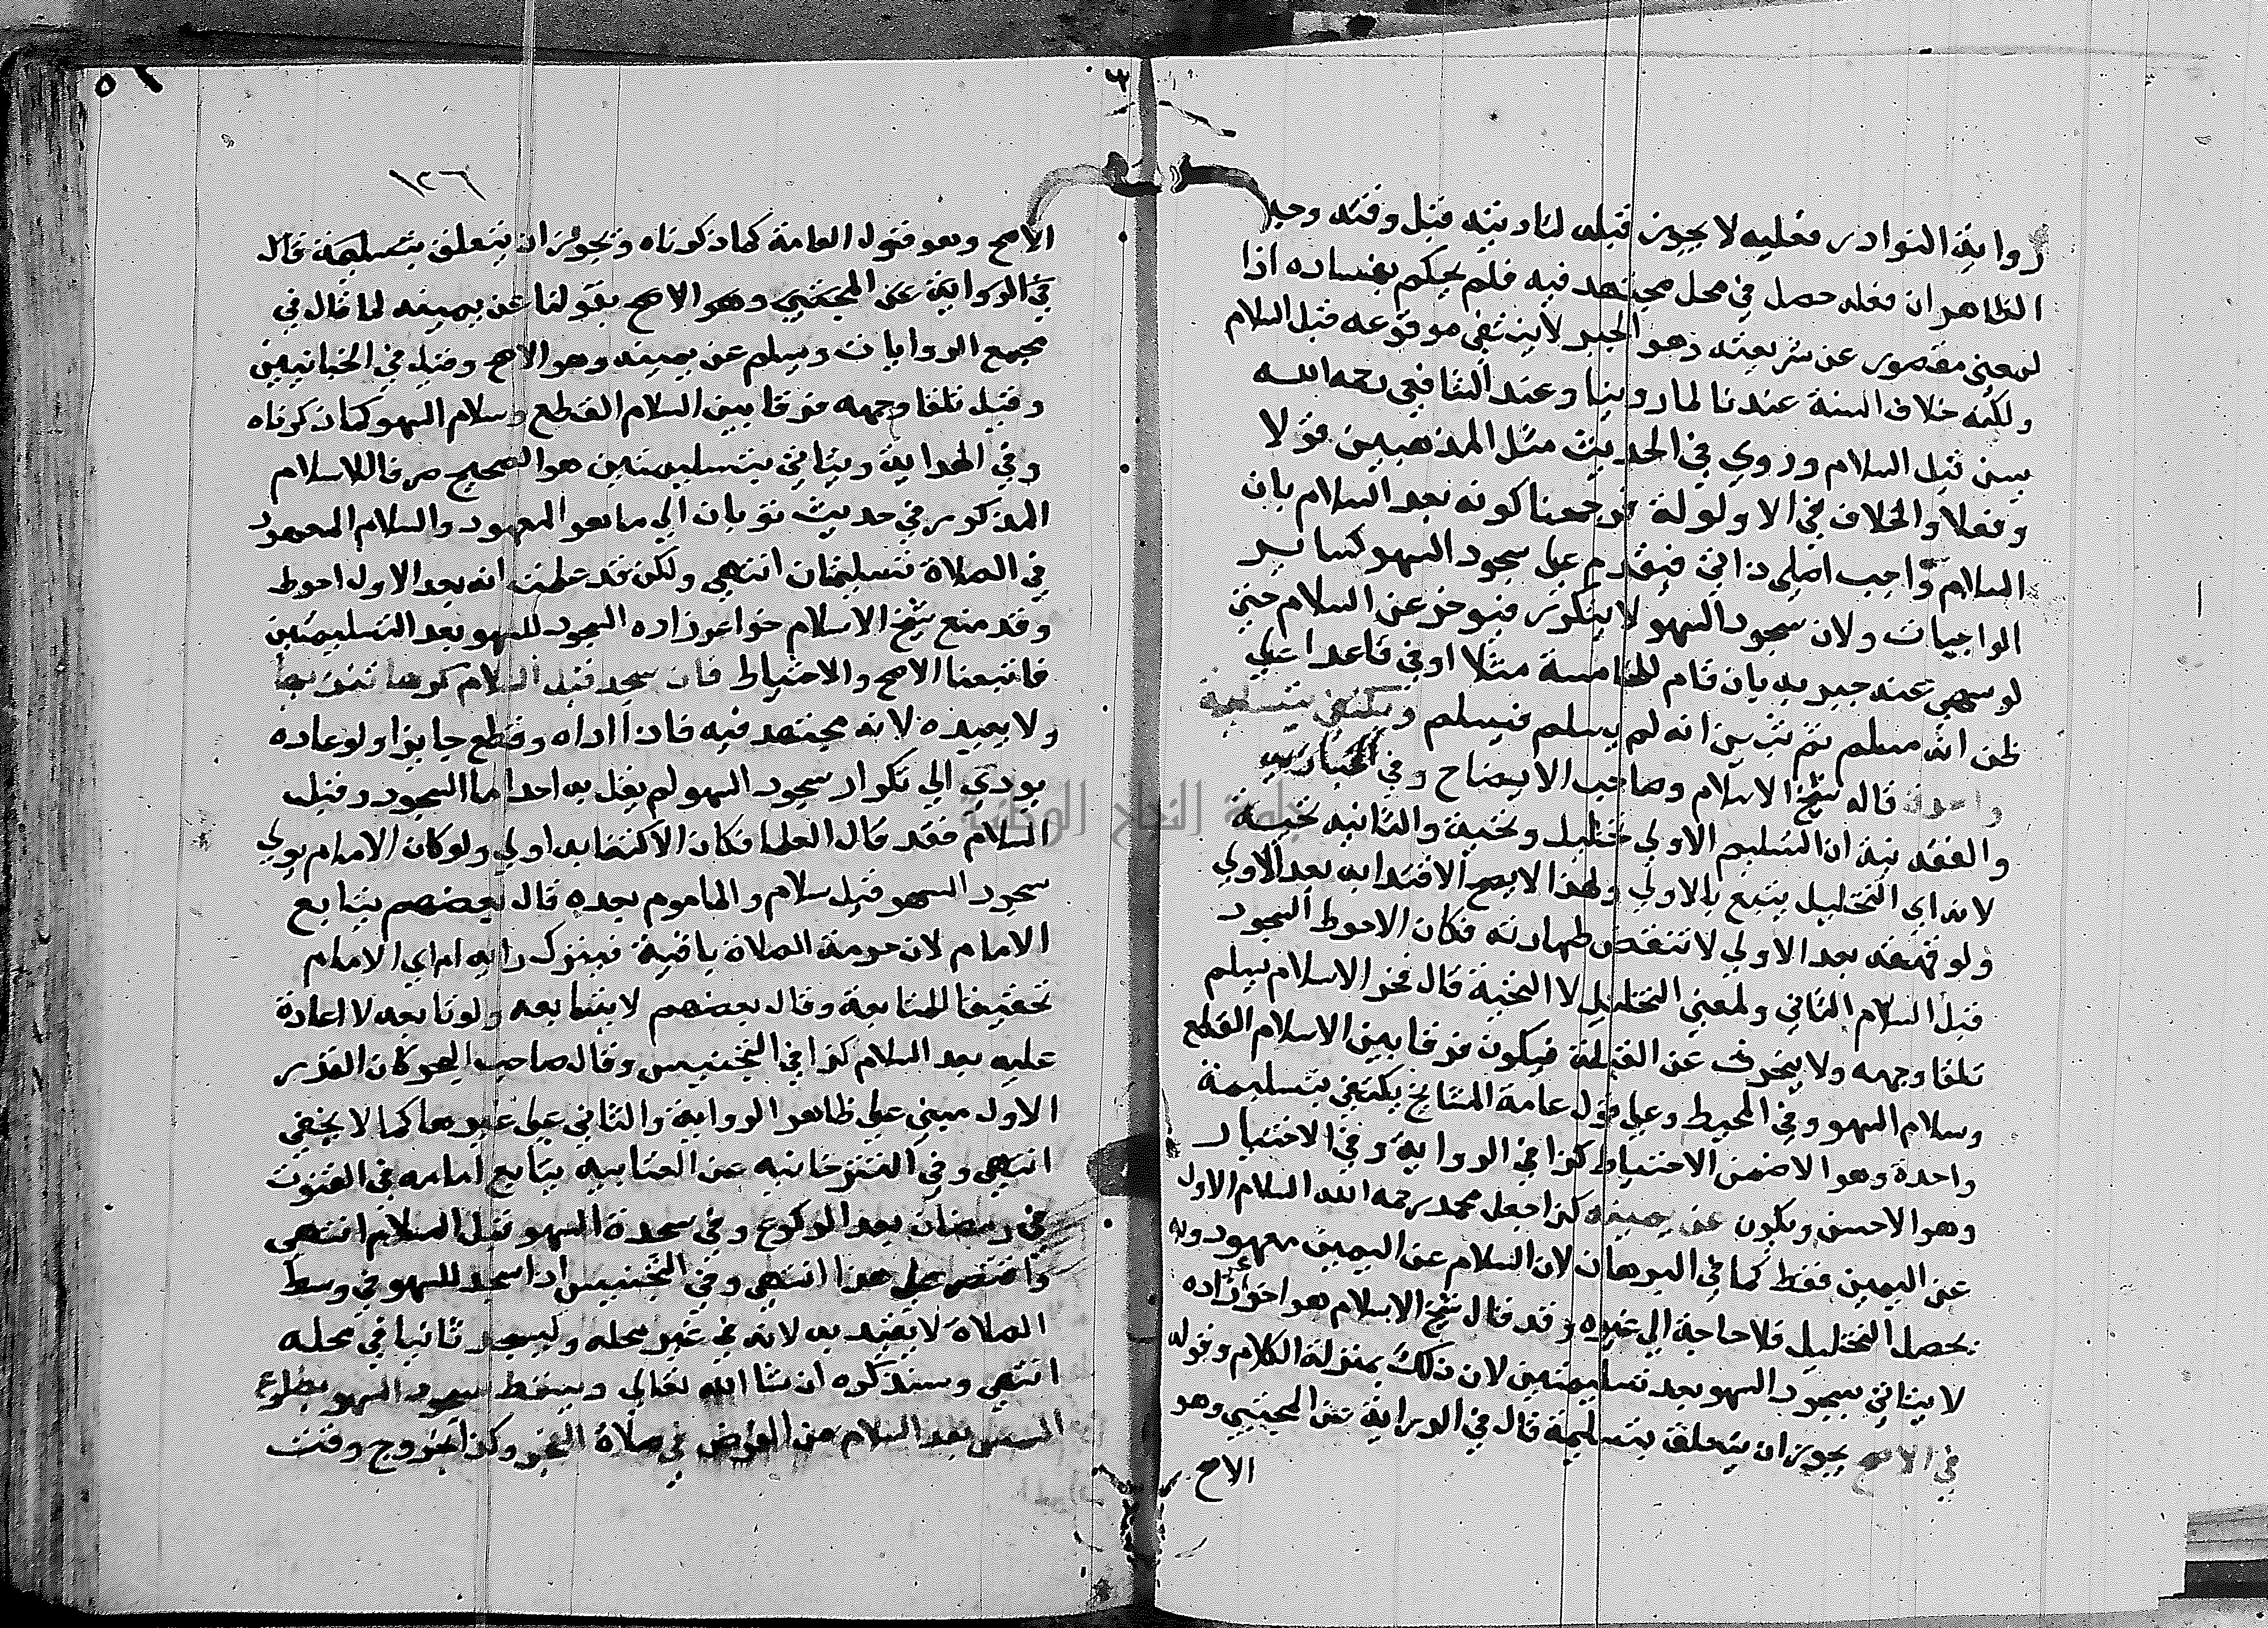 رواية النوادر فعليه لا يجوز قبله لتاديته قبل وقته وجه
الظاهر ان فعله حصل في محل مجتهد فيه فلم يحكم بفساده اذا
لمعنى مقصور عن شريعته وهو الجبر لا ينتفي موقوعه قبل السلام
ولكنه خلاف السنة عندنا لما روينا وعند الشافعي رحمه الله
يسن قبل السلام وروي في الحديث مثل المذهبين قولا
وفعلا والخلاف في الاولوية ورجحنا كونه بعد السلام بان
السلام واجب اصلي ذاتي فيقدم على سجود السهو كسائر
الواجبات ولان سجود السهو لا يتكرر فيوخر عن السلام حتى
لو سهى عنه جبر به بان قام للخامسة مثلا او في قاعدا على
ظن انه مسلم ثم تبين انه لم يسلم فيسلم ويكتفي بتسليمة
واحدة قاله شيخ الاسلام وصاحب الايضاح وفي
والفقه فيه ان التسليم الاولى تحليل وتحية والثانيه تحية
لانه اي التحليل يتبع بالاولى ولهذا لا يصح الاقتدا به بعد الاولى
ولو قهقه بعد الاولي لا تنتقض طهارته فكان الاحوط السجود
قبل السلام الثاني ولمعنى التحليل لا التحية قال فخر الاسلام يسلم
تلقا وجهه ولا ينحرف عن القبلة فيكون فرقا بين الاسلام القطع
وسلام السهو وفي المحيط وعلى قول عامة المشايخ يكتفي بتسليمة
واحدة وهو الاضمن الاحتياط كذا في الدراية وفي الاختيار
وهو الاحسن ويكون عن يمينه كذا جعل محمد رحمه الله السلام الاول
عن اليمين فقط كما في البرهان لان السلام عن اليمين معهود وبه
يحصل التحليل فلا حاجة الى غيره وقد قال شيخ الاسلام هو اخوازاده
لا ياتي بسجود السهو بعد تسليمتين لان ذلك بمنزلة الكلام وقوله
في الاصح يجوز ان يتعلق بتسليمة قال في الدراية عن المجتبى وهو
الاصح
١٢٦
الاصح وهو قول العامة كما ذكرناه ويجوز ان يتعلق بتسليمة قال
في الدراية عن المجتبى وهو الاصح بقولنا عن يمينه لما قال في
مجمع الروايات ويسلم عن يمينه وهو الاصح وقيل في الجانبين
وقيل تلقا وجهه فرقا بين السلام القطع وسلام السهو كما ذكرناه
وفي الهداية وياتي بتسليمتين هو الصحيح صرفا للاسلام
المذكور في حديث ثوبان الي ما هو المعهود والسلام المعهود
في الصلاة تسليمتان انتهى ولكن قد علمت انه بعد الاول احوط
وقد منع شيخ الاسلام خواهرزاده السجود للسهو بعد التسليمتين
فاتبعنا الاصح والاحتياط فان سجد قبل السلام كره تنزيها
ولا يعيده لانه مجتهد فيه فاذا اداه وقطع جايزا ولو عاده
يودي الي تكرار سجود السهو لم يقل به احد اما السجود وقبل
السلام فقد قال العلما فكان الاكتفا به اولي ولو كان الامام يري
سجود السهو قبل سلام والماموم بعده قال بعضهم يتابع
الامام لان حرمة الصلاة باقية فيترك رايه لراي الامام
تحقيقا للمتابعة وقال بعضهم لا يتابعه ولو تابعه لا اعادة
عليه بعد السلام كذا في التجنيس وقال صاحب البحر كان القدر
الاول مبني على ظاهر الرواية والثاني على غيرها كما لا يخفي
انتهى وفي التترخانيه عن العتابيه يتابع امامه في القنوت
في رمضان بعد الركوع وفي سجدة السهو قبل السلام انتهى
واقتصر على هذا انتهى وفي التجنيس اذا سجد للسهو في وسط
الصلاة لا يعتد به لانه في غير محله وليسجد ثانيا في محله
انتهى وسنذكره ان شا الله تعالى ويسقط سجود السهو بطلوع
الشمس بعد السلام من الفرض في صلاة الفجر وكذا خروج وقت